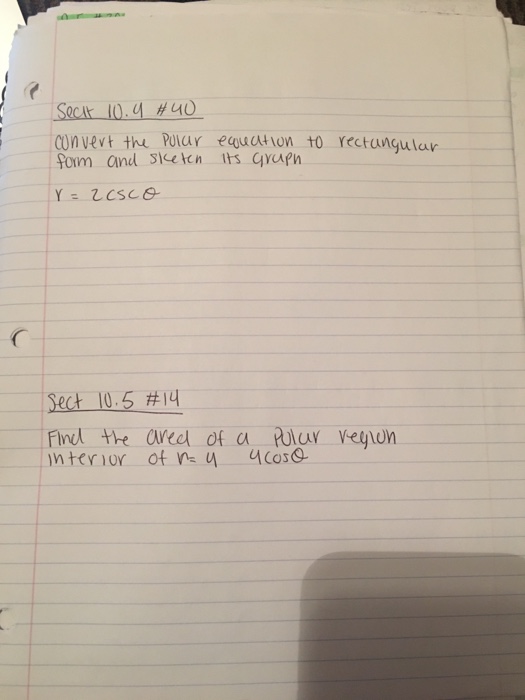 Sect 10.4 #40
Convert the Polar equation to rectangular
form and sketch its graph
r = 2cscθ
Sect 10.5 #14
Find the area of a Polar region
interior of r= 4 4cosθ